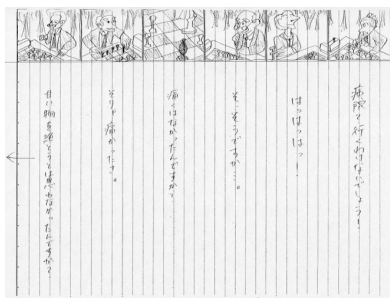 病院で行くわけないでしょう!
はっはっはっ!
そ、そうですか…。
痛くはなかったんですか?
そりゃ痛かったさ。
甘い物を控えようとは思わなかったんですか?